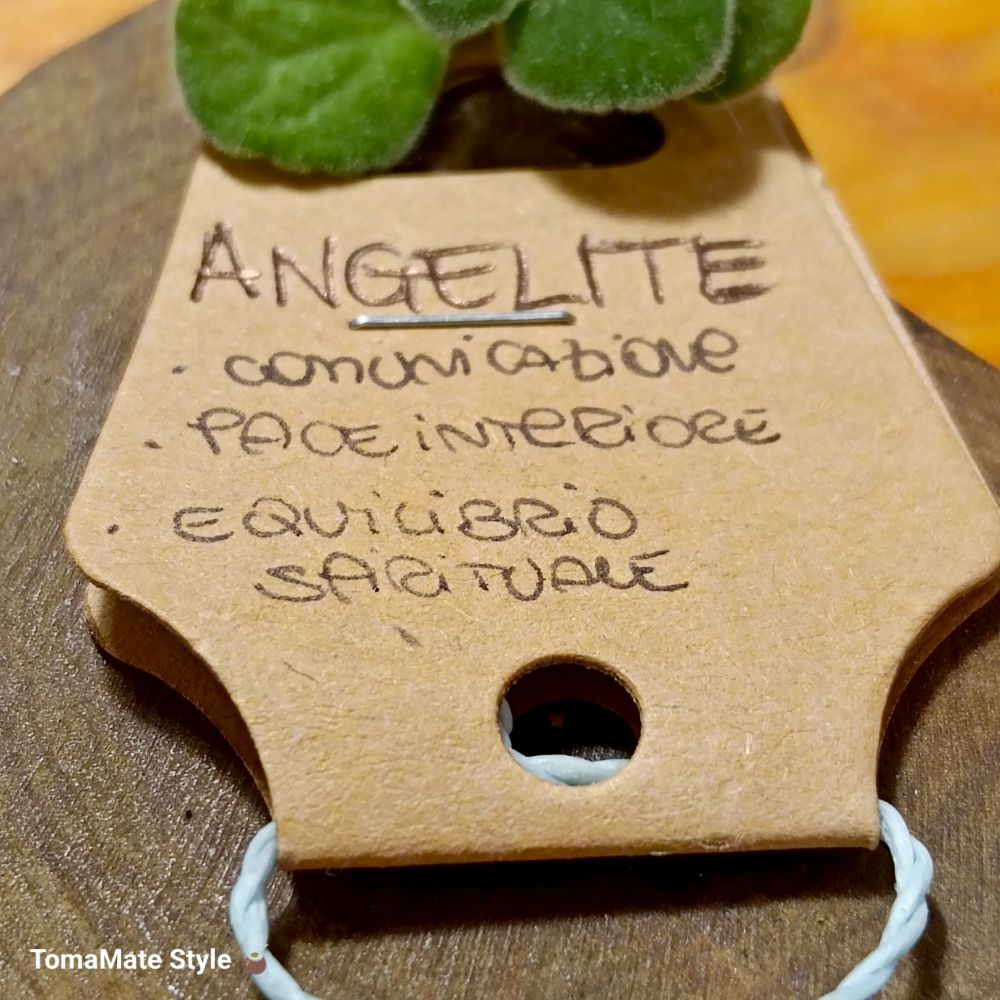 ANGELITE
· comunicazione
· PACE iNTERiORE
· EQUiLiBRiO
SPiRiTUALE
TomaMate Style 🧉